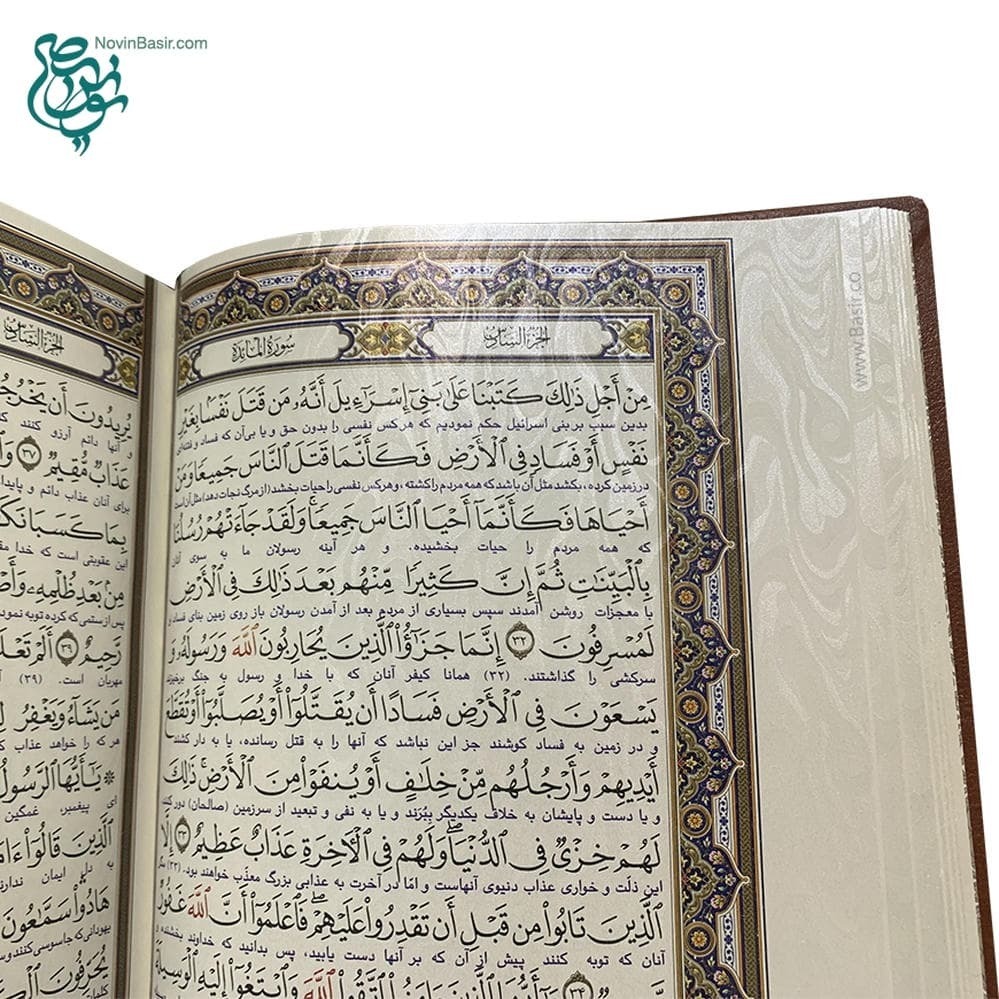 NovinBasir.com
www.Basir.co
الجزء السادس
سورة المائدة
مِنْ أَجْلِ ذَٰلِكَ كَتَبْنَا عَلَىٰ بَنِىٓ إِسْرَٰٓءِيلَ أَنَّهُۥ مَن قَتَلَ نَفْسًۢا بِغَيْرِ
بدین سبب بر بنی اسرائیل حکم نمودیم که هر کس نفسی را بدون حق و یا بی‌آن که فساد و فتنه‌ای
نَفْسٍ أَوْ فَسَادٍ فِى ٱلْأَرْضِ فَكَأَنَّمَا قَتَلَ ٱلنَّاسَ جَمِيعًا وَمَنْ
در زمین کرده، بکشد مثل آن باشد که همه مردم را کشته، و هر کس نفسی را حیات بخشد (از مرگ نجات دهد) مثل آن است
أَحْيَاهَا فَكَأَنَّمَآ أَحْيَا ٱلنَّاسَ جَمِيعًا ۚ وَلَقَدْ جَآءَتْهُمْ رُسُلُنَا
که همه مردم را حیات بخشیده. و هر آینه رسولان ما به سوی آنان
بِٱلْبَيِّنَٰتِ ثُمَّ إِنَّ كَثِيرًا مِّنْهُم بَعْدَ ذَٰلِكَ فِى ٱلْأَرْضِ
با معجزات روشن آمدند سپس بسیاری از مردم بعد از آمدن رسولان باز روی زمین بنای فساد و
لَمُسْرِفُونَ ٣٢ إِنَّمَا جَزَٰٓؤُا۟ ٱلَّذِينَ يُحَارِبُونَ ٱللَّهَ وَرَسُولَهُۥ وَ
سرکشی را گذاشتند. (۳۲) همانا کیفر آنان که با خدا و رسول به جنگ برخیزند
يَسْعَوْنَ فِى ٱلْأَرْضِ فَسَادًا أَن يُقَتَّلُوٓا۟ أَوْ يُصَلَّبُوٓا۟ أَوْ تُقَطَّعَ
و در زمین به فساد کوشند جز این نباشد که آنها را به قتل رسانده، یا به دار کشند
أَيْدِيهِمْ وَأَرْجُلُهُم مِّنْ خِلَٰفٍ أَوْ يُنفَوْا۟ مِنَ ٱلْأَرْضِ ۚ ذَٰلِكَ
و یا دست و پایشان به خلاف یکدیگر ببُرَند و یا به نفی و تبعید از سرزمین (صالحان) دور کنند
لَهُمْ خِزْىٌ فِى ٱلدُّنْيَا ۖ وَلَهُمْ فِى ٱلْءَاخِرَةِ عَذَابٌ عَظِيمٌ ٣٣ إِلَّا
این ذلّت و خواری عذاب دنیوی آنهاست و امّا در آخرت به عذابی بزرگ معذّب خواهند بود. (۳۳) مگر
ٱلَّذِينَ تَابُوا۟ مِن قَبْلِ أَن تَقْدِرُوا۟ عَلَيْهِمْ ۖ فَٱعْلَمُوٓا۟ أَنَّ ٱللَّهَ غَفُورٌ
آنان که توبه کنند پیش از آن که بر آنها دست یابید، پس بدانید که خداوند بخشنده و
٣٤ يَٰٓأَيُّهَا ٱلَّذِينَ ءَامَنُوا۟ ٱتَّقُوا۟ ٱللَّهَ وَٱبْتَغُوٓا۟ إِلَيْهِ ٱلْوَسِيلَةَ
الجزء السادس
يُرِيدُونَ أَن يَخْرُجُ
و آنها دائم آرزو کنند
عَذَابٌ مُّقِيمٌ ٣٧
برای آنان عذاب دائم و پایدا
بِمَا كَسَبَا نَكَ
این عقوبتی است که خدا مق
مِنۢ بَعْدِ ظُلْمِهِۦ وَأَصْ
پس از ستمی که کرده توبه نمود
رَّحِيمٌ ٣٩ أَلَمْ تَعْلَ
مهربان است. (۳۹)
مَن يَشَآءُ وَيَغْفِرُ
هر که را خواهد عذاب ک
يَٰٓأَيُّهَا ٱلرَّسُولُ
ای پیغمبر، غمگین
ٱلَّذِينَ قَالُوٓا۟ ءَامَ
به دل ایمان ندارن
هَادُوا۟ سَمَّٰعُونَ
یهودانی که جاسوسی کنند و س
يُحَرِّفُونَ ٱلْكَ